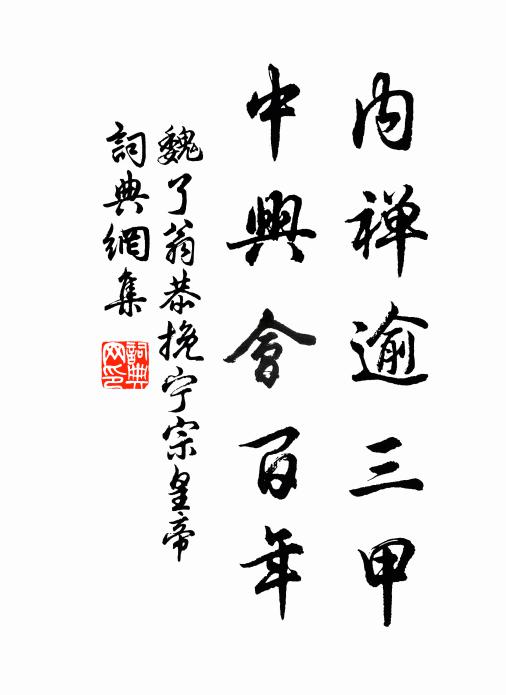 内禅逾三甲
中興會百年
魏了翁恭挽宁宗皇帝
詞典網集
詞典网印